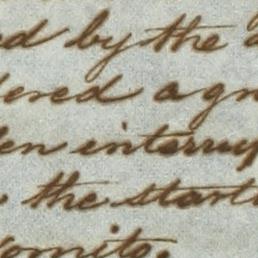 ed by the
ered agn
en interrup
the start
vomito.